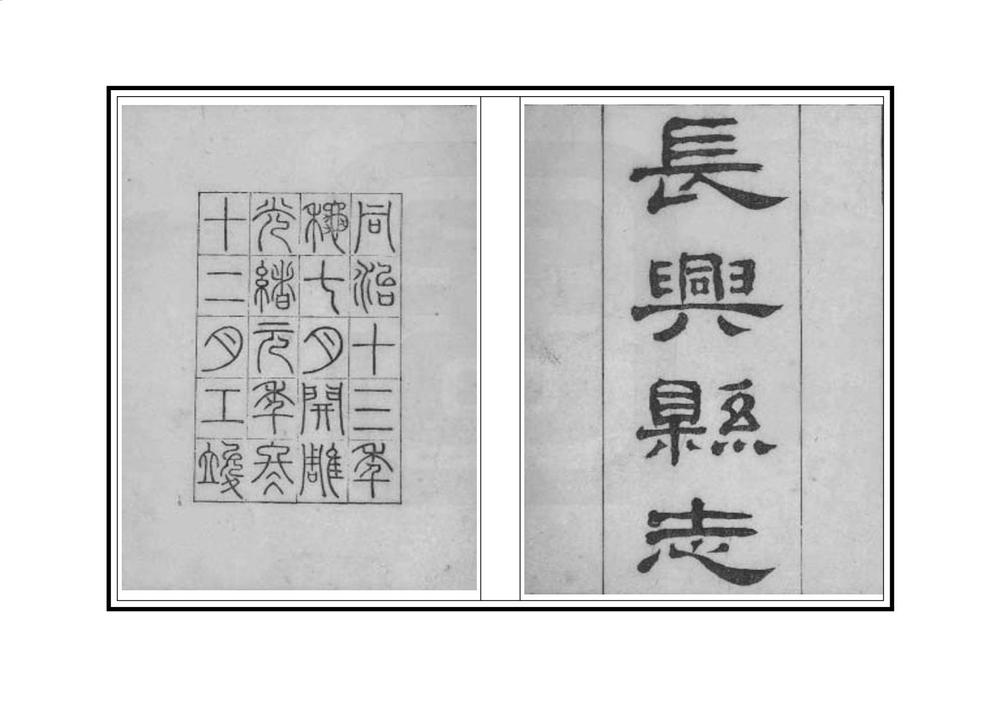 長興縣志
同治十三年
龝七月開雕
光緒元年冬
十二月工竣